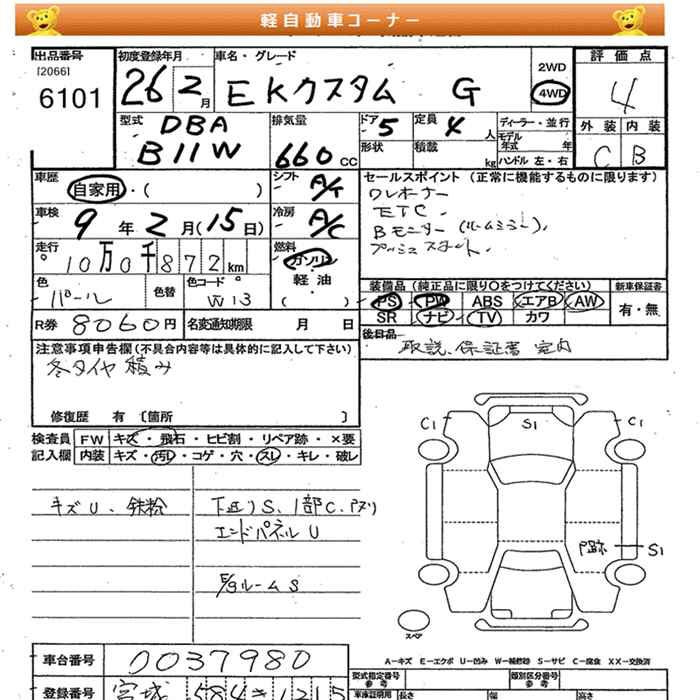 軽自動車コーナー
出品番号 初度登録年月 車名・グレード 2WD 評価点
[2066]
6101 26 2月 EKクスタム G 4WD 4
型式 排気量 ドア 定員 ディーラー・並行 外装 内装
DBA 5 4人 モデル年式 年
B11W 660cc 形状 積載 kg ハンドル 左・右 C B
車歴 シフト セールスポイント (正常に機能するものに限ります)
自家用・( ) A/T ワンオーナー
ETC.
車検 冷房 Bモニター(ルームミラー).
9年2月(15日) A/C プッシュスタート.
走行 燃料
10万0千872km ガソリン
軽油
色 色替 色コードNo ( ) 装備品(純正品に限り○をつけてください) 新車保証書
パール W13 PS PW ABS エアB AW 有・無
R券 8060円 名変通知期限 月 日 SR ナビ TV カワ
後日品
注意事項申告欄(不具合内容等は具体的に記入して下さい) 取説、保証書 室内
冬タイヤ積み
修復歴 有〔箇所 〕
検査員 FW キズ・飛石・ヒビ割・リペア跡・×要
記入欄 内装 キズ・汚レ・コゲ・穴・スレ・キレ・破レ
C1 S1 C1
キズU、鉄粉 下廻りS、1部C、アタリ
エンドパネルU
凹跡 S1
E/gルームS
スペア
A-キズ E-エクボ U-凹み W-補修跡 S-サビ C-腐食 XX-交換済
車台番号 0037980
型式指定番号 類別区分番号
参考 参考
登録番号 宮城 584 き 1215
車庫証明用 長さ 幅 高さ